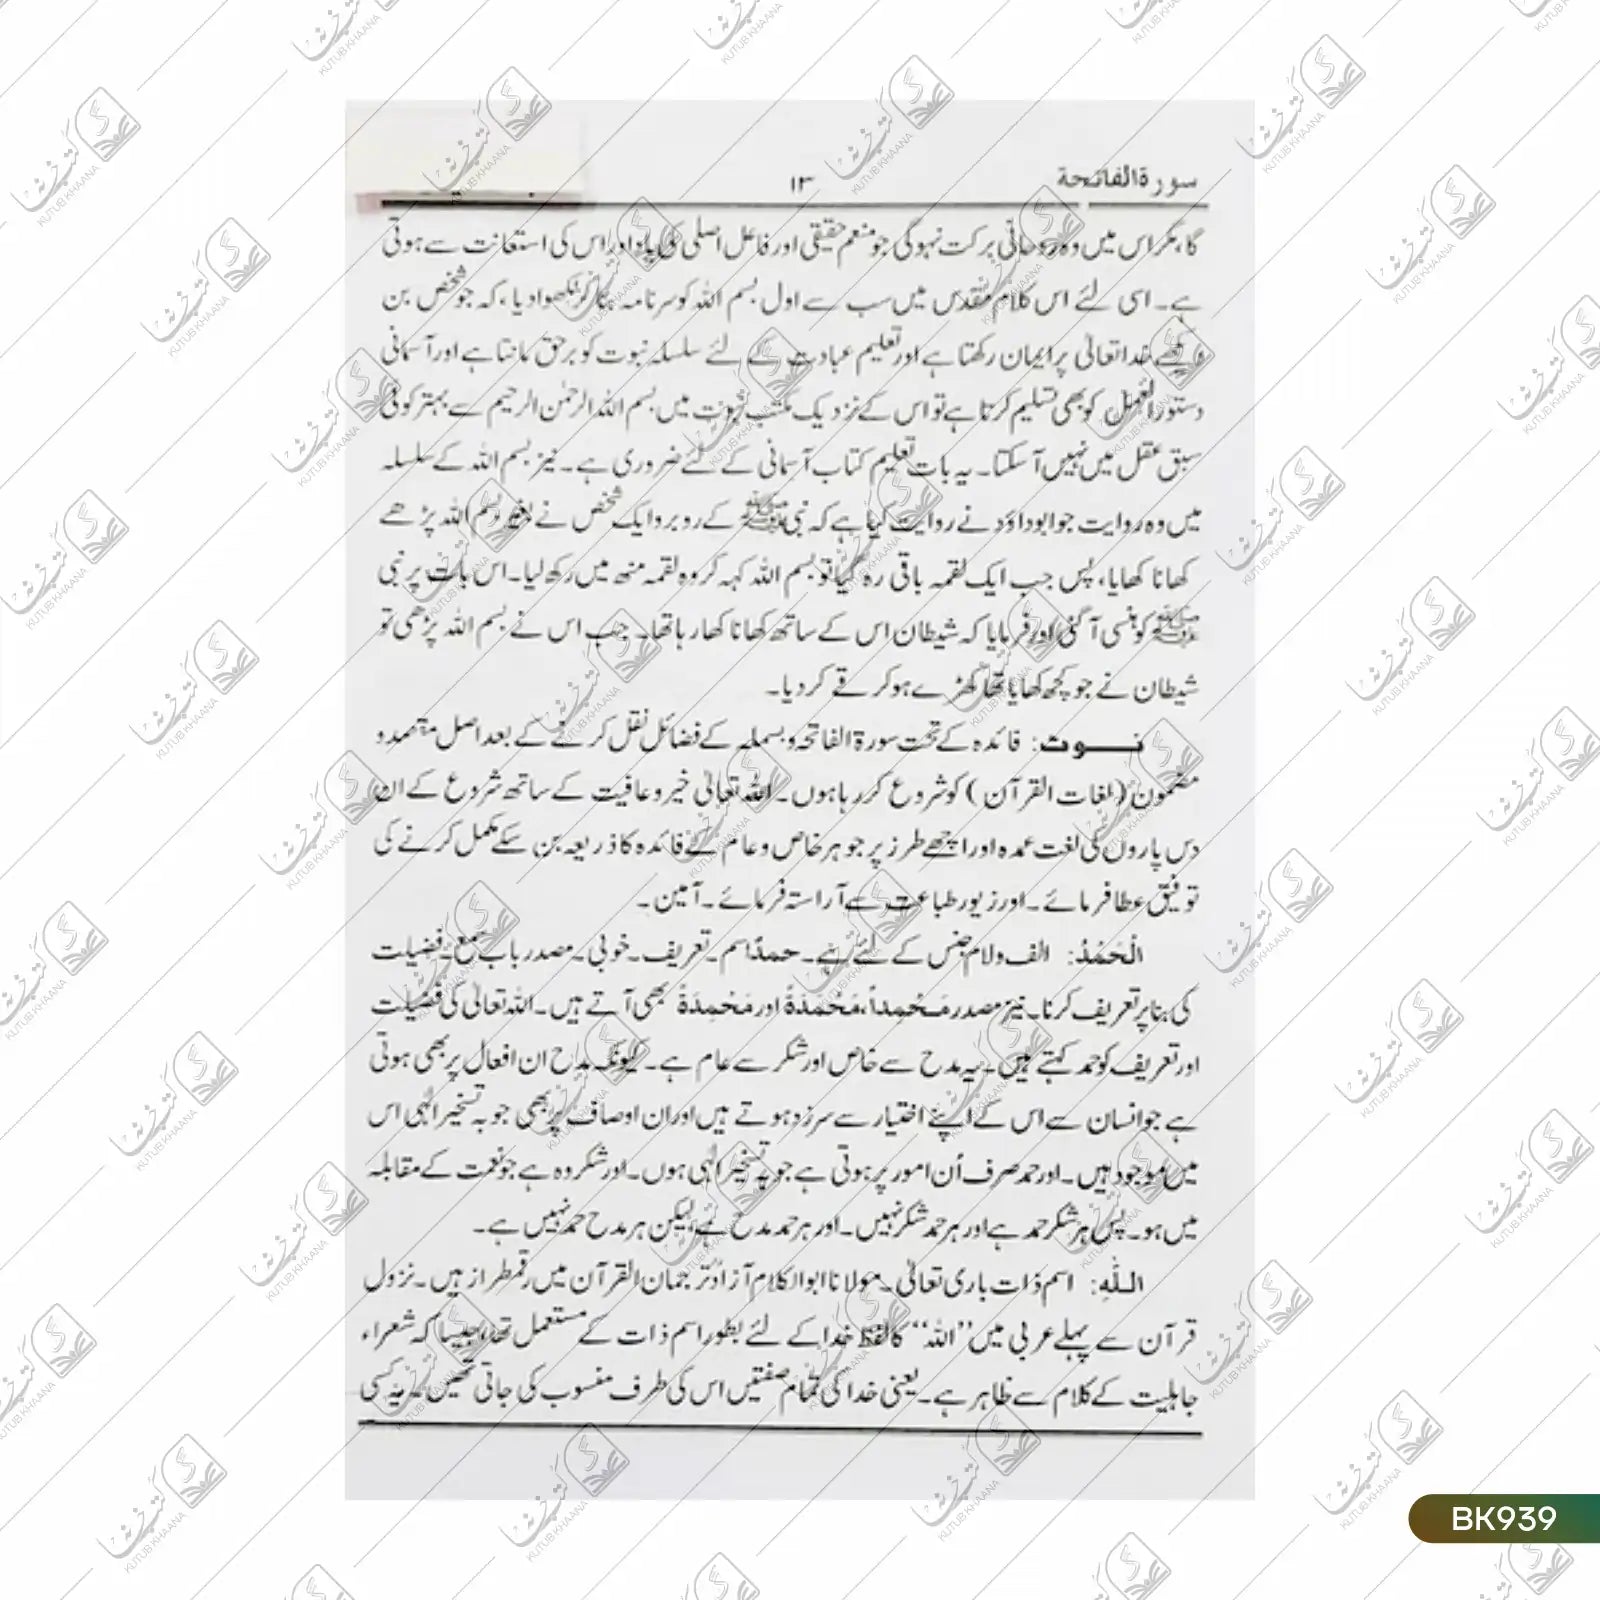 سورۃ الفاتحۃ
۱۳
گا، مگر اس میں وہ روحانی برکت نہ ہوگی جو منعم حقیقی اور فاعل اصلی کی یاد اور اس کی استعانت سے ہوتی
ہے۔ اسی لئے اس کلام مقدس میں سب سے اول بسم اللہ کو سرنامہ بنا کر لکھوا دیا، کہ جو شخص بن
دیکھے خدا تعالیٰ پر ایمان رکھتا ہے اور تعلیم عبادت کے لئے سلسلہ نبوت کو برحق مانتا ہے اور آسمانی
دستور العمل کو بھی تسلیم کرتا ہے تو اس کے نزدیک مکتب نبوت میں بسم اللہ الرحمٰن الرحیم سے بہتر کوئی
سبق عقل میں نہیں آسکتا۔ یہ بات تعلیم کتاب آسمانی کے لئے ضروری ہے۔ نیز بسم اللہ کے سلسلہ
میں وہ روایت جو ابوداؤد نے روایت کیا ہے کہ نبی ﷺ کے روبرو ایک شخص نے بغیر بسم اللہ پڑھے
کھانا کھایا، پس جب ایک لقمہ باقی رہ گیا تو بسم اللہ کہہ کر وہ لقمہ منھ میں رکھ لیا۔ اس بات پر نبی
ﷺ کو ہنسی آگئی اور فرمایا کہ شیطان اس کے ساتھ کھانا کھا رہا تھا۔ جب اس نے بسم اللہ پڑھی تو
شیطان نے جو کچھ کھایا تھا کھڑے ہو کر قے کر دیا۔
نوٹ: فائدہ کے تحت سورۃ الفاتحہ و بسملہ کے فضائل نقل کرنے کے بعد اصل مقصد و
مضمون (لغات القرآن) کو شروع کر رہا ہوں۔ اللہ تعالیٰ خیر و عافیت کے ساتھ شروع کے ان
دس پاروں کی لغت عمدہ اور اچھے طرز پر جو ہر خاص و عام کے فائدہ کا ذریعہ بن سکے مکمل کرنے کی
توفیق عطا فرمائے۔ اور زیور طباعت سے آراستہ فرمائے۔ آمین۔
اَلْحَمْدُ: الف و لام جنس کے لئے ہے۔ حمداً اسم۔ تعریف۔ خوبی۔ مصدر باب سمع۔ فضیلت
کی بنا پر تعریف کرنا۔ نیز مصدر مَحْمِداً، مَحْمَدَةً اور مَحْمِدَةً بھی آتے ہیں۔ اللہ تعالیٰ کی فضیلت
اور تعریف کو حمد کہتے ہیں۔ یہ مدح سے خاص اور شکر سے عام ہے۔ کیونکہ مدح ان افعال پر بھی ہوتی
ہے جو انسان سے اس کے اپنے اختیار سے سرزد ہوتے ہیں اور ان اوصاف پر بھی جو بہ تسخیر الٰہی اس
میں موجود ہیں۔ اور حمد صرف اُن امور پر ہوتی ہے جو بہ تسخیر الٰہی ہوں۔ اور شکر وہ ہے جو نعمت کے مقابلہ
میں ہو۔ پس ہر شکر حمد ہے اور ہر حمد شکر نہیں۔ اور ہر حمد مدح ہے لیکن ہر مدح حمد نہیں ہے۔
اللّٰہِ: اسم ذات باری تعالیٰ۔ مولانا ابوالکلام آزاد ترجمان القرآن میں رقمطراز ہیں۔ نزول
قرآن سے پہلے عربی میں ”اللہ“ کا لفظ خدا کے لئے بطور اسم ذات کے مستعمل تھا جیسا کہ شعراء
جاہلیت کے کلام سے ظاہر ہے۔ یعنی خدا کی تمام صفتیں اس کی طرف منسوب کی جاتی تھیں۔ یہ کسی
BK939